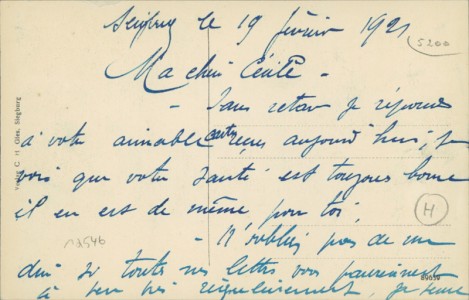 Siegburg le 19 février 1921
5200
Ma chère Cécile -
- Sans retard je réponds
à votre aimable carte reçue aujourd'hui, je
vois que votre santé est toujours bonne
il en est de même pour toi,
H
13546
- N'oublies pas de me
dire si toutes mes lettres vous parviennent
à peu près régulièrement, je
Verlag C. H. Glas, Siegburg